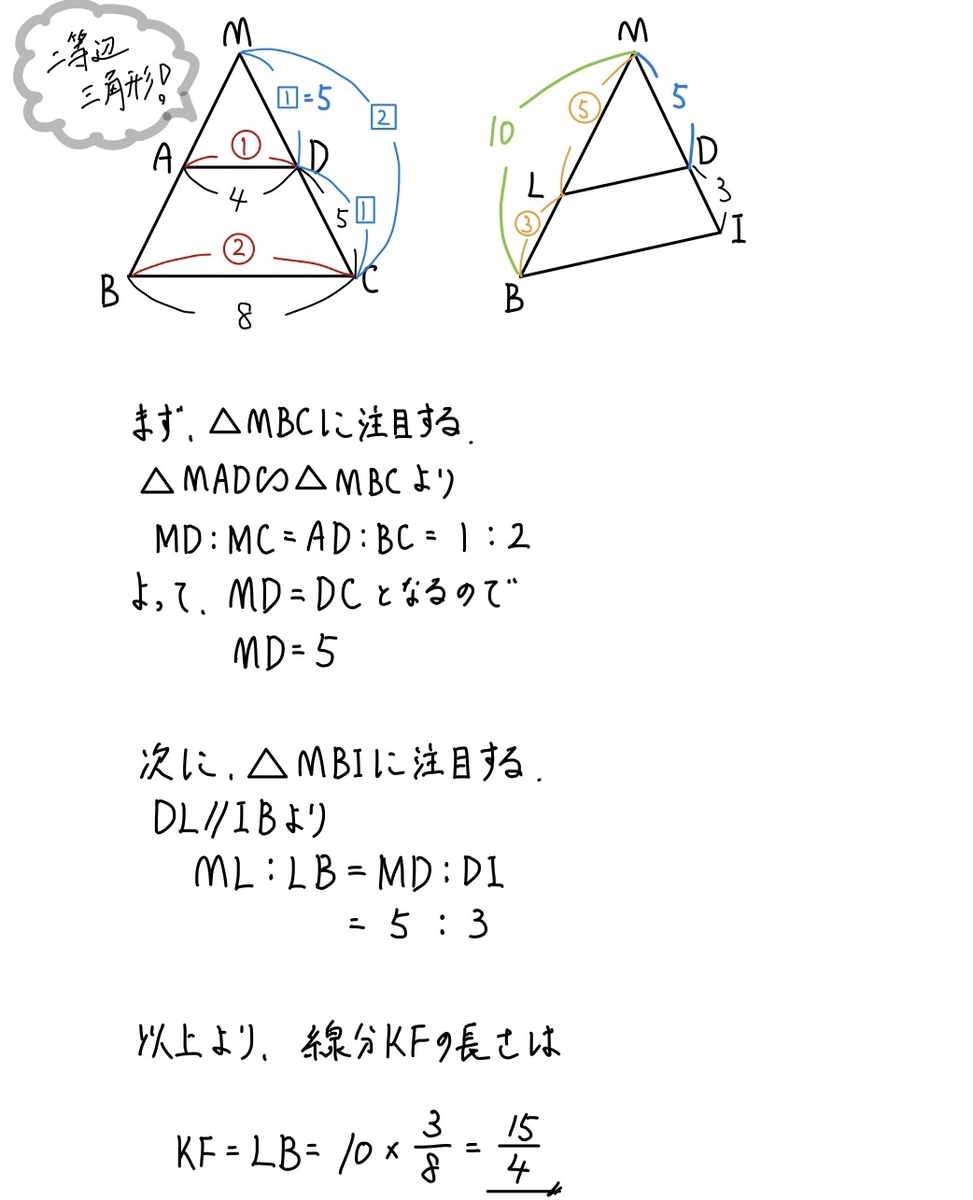 二等辺
三角形!
M
1=5
2
A
①
D
4
5
1
②
B
C
8
M
⑤
5
10
L
D
3
③
I
B
まず、△MBCに注目する.
△MAD∽△MBCより
MD:MC=AD:BC=1:2
よって、MD=DCとなるので
MD=5
次に、△MBIに注目する.
DL//IBより
ML:LB=MD:DI
=5:3
以上より、線分KFの長さは
KF=LB=10×3/8=15/4